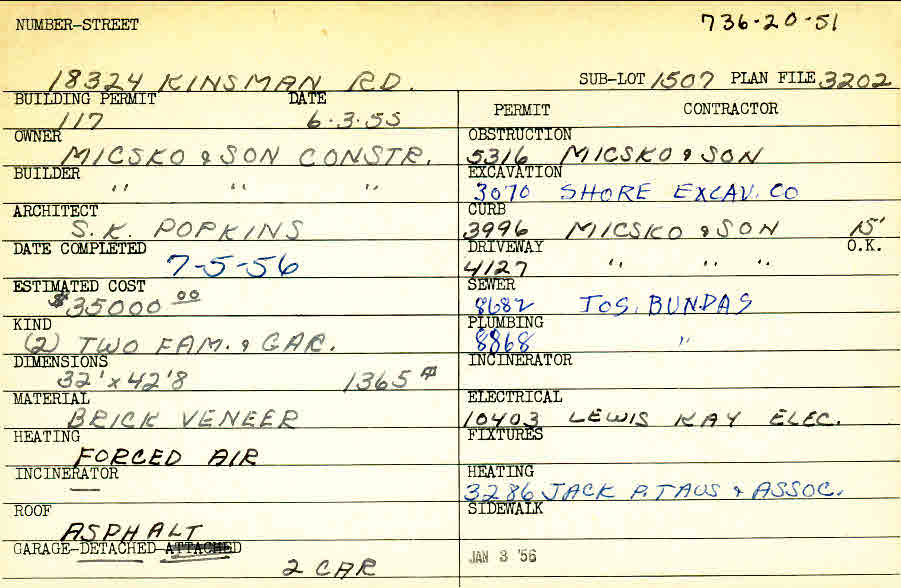 NUMBER-STREET
736-20-51
18324 KINSMAN RD.
SUB-LOT 1507 PLAN FILE 3202
BUILDING PERMIT DATE
117 6-3-55
OWNER
MICSKO & SON CONSTR.
BUILDER
" " "
ARCHITECT
S. K. POPKINS
DATE COMPLETED
7-5-56
ESTIMATED COST
$35000 00
KIND
(2) TWO FAM. & GAR.
DIMENSIONS
32' x 42'8 1365 #
MATERIAL
BRICK VENEER
HEATING
FORCED AIR
INCINERATOR
—
ROOF
ASPHALT
GARAGE-DETACHED ATTACHED
2 CAR
PERMIT CONTRACTOR
OBSTRUCTION
5316 MICSKO & SON
EXCAVATION
3070 SHORE EXCAV. CO
CURB
3996 MICSKO & SON 15'
DRIVEWAY O.K.
4127 " " "
SEWER
8682 JOS. BUNDAS
PLUMBING
8868 "
INCINERATOR
ELECTRICAL
10403 LEWIS KAY ELEC.
FIXTURES
HEATING
3286 JACK P. TAUS & ASSOC.
SIDEWALK
JAN 3 '56